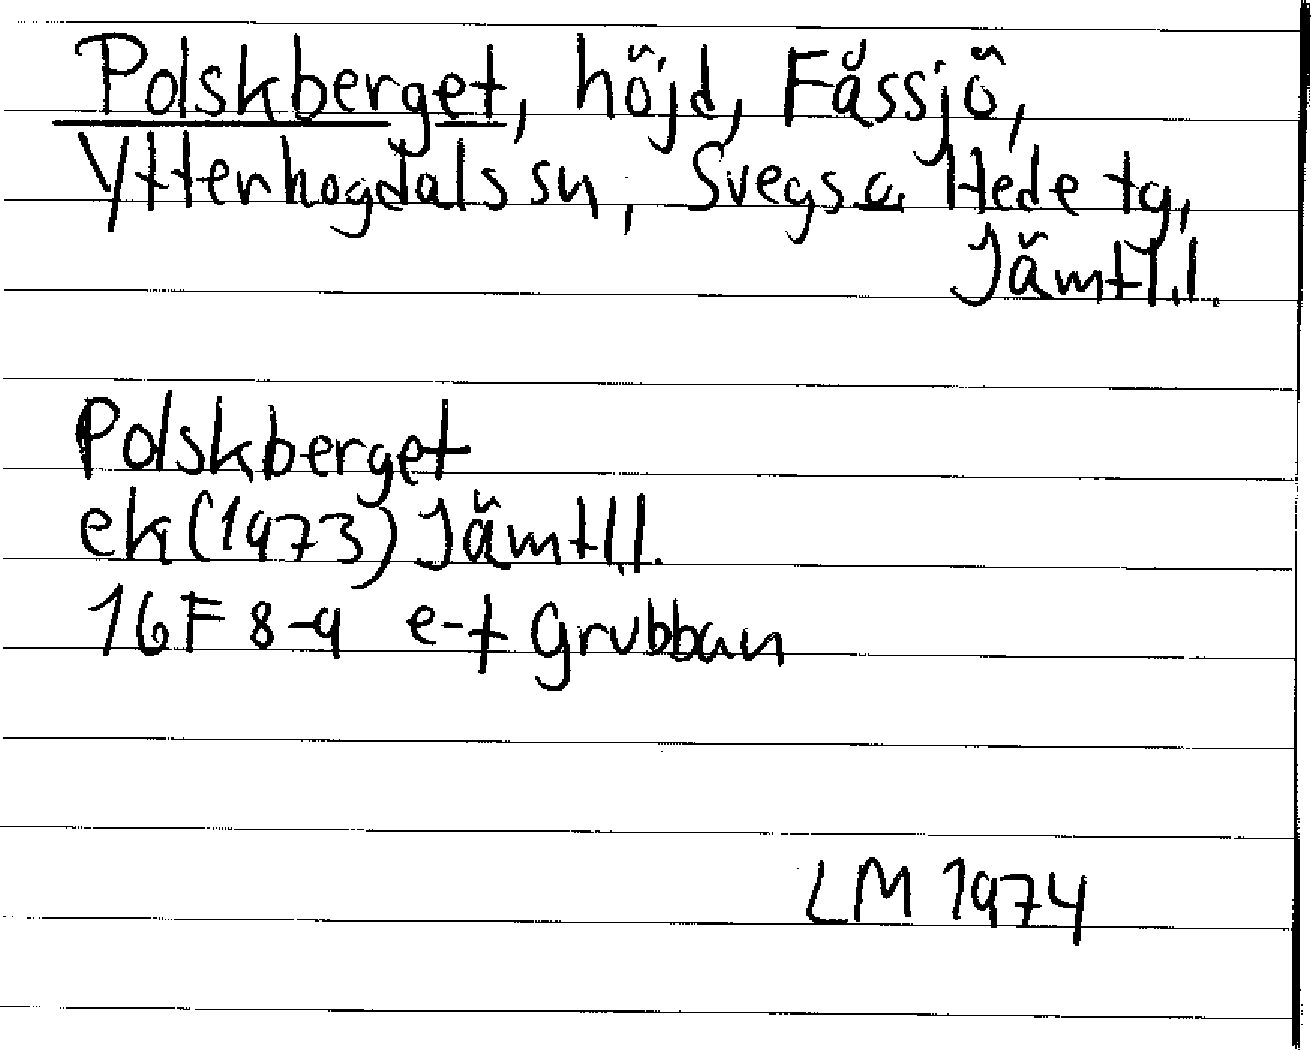 Polskberget, höjd, Fåssjö,
Ytterhogdals sn, Svegs o. Hede tg,
Jämtl.l.
Polskberget
ek(1973) Jämtl.l.
16F 8-9 e-f Grubban
LM 1974